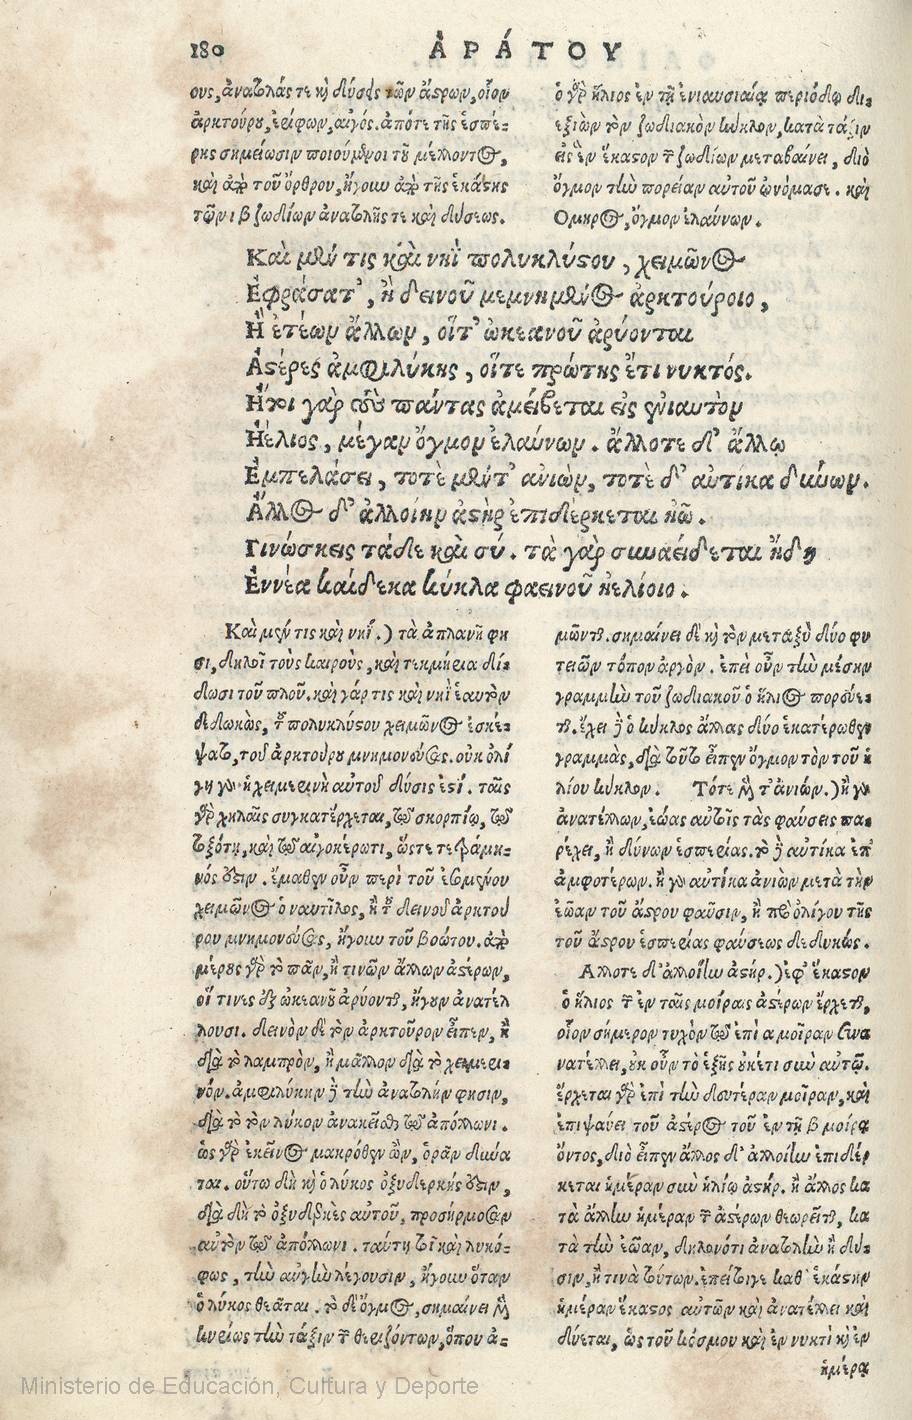 180
ἈΡΆΤΟΥ
ους, ἀναβολάς τε κỳ δύσεις τῶν ἄστρων, οἷον
ἀρκτούρου, ἐρίφων, αἰγός. ἀπό τε τῆς ἑσπέ-
ρης σημείωσιν ποιούμενοι τοῦ μέλλοντος,
καὶ ἀπὸ τοῦ ὄρθρου, ἤγουν ἀπὸ τῆς ἑκάστης
τῶν ιβ ζωδίων ἀναβολῆς τε καὶ δύσεως.
ὁ γὰρ ἥλιος ἐν τῇ ἐνιαυσιαίᾳ περιόδῳ δι-
εξιὼν τὸν ζωδιακὸν κύκλον, κατὰ τάξιν
εἰς ἓν ἕκαστον τῶν ζωδίων μεταβαίνει, διὸ
ὄγμον τὴν πορείαν αὐτοῦ ὠνόμασε. καὶ
Ὅμηρος, ὄγμον ἐλαύνων.
Καὶ μέν τις καὶ νηῒ πολυκλύστου, χειμῶνος
Ἐφράσατ', ἢ δεινοῦ μεμνημένος ἀρκτούροιο,
Ἠ ἑτέων ἄλλων, οἵτ' ὠκεανοῦ ἀρύονται
Ἀστέρες ἀμφιλύκης, οἵτε πρώτης ἔτι νυκτός.
Ἤτοι γὰρ τοὺς πάντας ἀμείβεται εἰς ἐνιαυτὸν
Ἠέλιος, μέγαν ὄγμον ἐλαύνων. ἄλλοτε δ' ἄλλῳ
Ἐμπελάσει, τοτὲ μέν τ' ἀνιὼν, τοτὲ δ' αὐτίκα δύνων.
Ἄλλος δ' ἀλλοίην ἀστὴρ ἐπιδέρκεται ἠῶ.
Γινώσκεις τάδε καὶ σύ. τὰ γὰρ συναείδεται ἤδη
Ἐννέα καίδεκα κύκλα φαεινοῦ ἠελίοιο.
Καὶ μέν τις καὶ νηΐ.) τὰ ἀπλανῆ φη
σι, δηλοῖ τοὺς καιροὺς, καὶ τεκμήρια δί-
δωσι τοῦ πλοῦ. καὶ γάρ τις καὶ νηῒ ἑαυτὸν
δεδωκὼς, τοῦ πολυκλύστου χειμῶνος ἐσκέ-
ψατο, τοῦ ἀρκτούρου μνημονεύσας. οὐκ ὀλί
γη γὰρ ἡ χειμερινὴ αὐτοῦ δύσις ἐστί. ταῖς
γὰρ χηλαῖς συγκατέρχεται, τῷ σκορπίῳ, τῷ
τοξότῃ, καὶ τῷ αἰγοκέρωτι, ὥστε τετράμη-
νός ἐστιν. ἔμαθεν οὖν περὶ τοῦ ἐσομένου
χειμῶνος ὁ ναυτίλος, ἢ τοῦ δεινοῦ ἀρκτού
ρου μνημονεύσας, ἤγουν τοῦ βοώτου. ἀπὸ
μέρους γὰρ τὸ πᾶν, ἤ τινῶν ἄλλων ἀστέρων,
οἵ τινες ἐξ ὠκεανοῦ ἀρύονται, ἤγουν ἀνατέλ
λουσι. δεινὸν δὲ τὸν ἀρκτοῦρον εἶπεν, ἢ
διὰ τὸ λαμπρὸν, ἢ μᾶλλον διὰ τὸ χειμερι-
νόν. ἀμφιλύκην δὲ τὴν ἀναβολήν φησιν,
διὰ τὸ τὸν λύκον ἀνακεῖσθαι τῷ ἀπόλλωνι.
ὡς γὰρ ἐκεῖνος μακρόθεν ὢν, ὁρᾶν δύνα
ται. οὕτω δὴ κỳ ὁ λύκος ὀξυδερκής ἐστιν,
διὰ δὴ τὸ ὀξυδερκὲς αὐτοῦ, προσήρμοσαν
αὐτὸν τῷ ἀπόλλωνι. ταύτῃ τοι καὶ λυκό-
φως, τὴν αὐγὴν λέγουσιν, ἤγουν ὅταν
ὁ λύκος θεᾶται. τὸ δὲ ὄγμος, σημαίνει μὲν
κυρίως τὴν τάξιν τῶν θεριζόντων, ὅπου ἀ-
μῶνται. σημαίνει δὲ κỳ τὸν μεταξὺ δύο φυ
τειῶν τόπον ἀργὸν. ἐπεὶ οὖν τὴν μέσην
γραμμὴν τοῦ ζωδιακοῦ ὁ ἥλιος πορεύε-
ται. ἔχει δὲ ὁ κύκλος ἄλλας δύο ἑκατέρωθεν
γραμμὰς, διὰ τοῦτο εἶπεν ὄγμον τὸν τοῦ ἡ
λίου κύκλον. Τότε μέν τ' ἀνιών.) ἢ γὰρ
ἀνατέλλων, ἑῴας αὐτοῖς τὰς φαύσεις πα-
ρέχει, ἢ δύνων ἑσπερίας. τὸ δὲ αὐτίκα ἐπ'
ἀμφοτέρων. ἢ γὰρ αὐτίκα ἀνιὼν μετὰ τὴν
ἑῴαν τοῦ ἄστρου φαῦσιν, ἢ πρὸ ὀλίγου τῆς
τοῦ ἄστρου ἑσπερίας φαύσεως δεδυκώς.
Ἄλλοτε δ' ἀλλοίην ἀστήρ.) ἐφ' ἕκαστον
ὁ ἥλιος τῶν ἐν ταῖς μοίραις ἀστέρων ἔρχεται,
οἷον σήμερον τυχὸν τῷ ἐπὶ α μοῖραν συνα
νατέλλει, οὐκ οὖν τὸ ἑξῆς οὐκέτι σὺν αὐτῷ.
ἔρχεται γὰρ ἐπὶ τὴν δευτέραν μοῖραν, καὶ
ἐπιψαύει τοῦ ἀστέρος τοῦ ἐν τῇ β μοίρᾳ
ὄντος, διὸ εἶπεν ἄλλος δ' ἀλλοίην ἐπιδέρ
κεται ἡμέραν σὺν ἡλίῳ ἀστήρ. ἢ ἄλλος κα
τὰ ἄλλην ἡμέραν τῶν ἀστέρων θεωρεῖται, κα
τὰ τὴν ἑῴαν, δηλονότι ἀναβολὴν ἢ δύ-
σιν, ἤ τινα τούτων. ἐπεί τοιγε καθ' ἑκάστην
ἡμέραν ἕκαστος αὐτῶν καὶ ἀνατέλλει καὶ
δύεται, ὡς τοῦ κόσμου καὶ ἐν νυκτὶ κỳ ἐν
ἡμέρᾳ
Ministerio de Educación, Cultura y Deporte